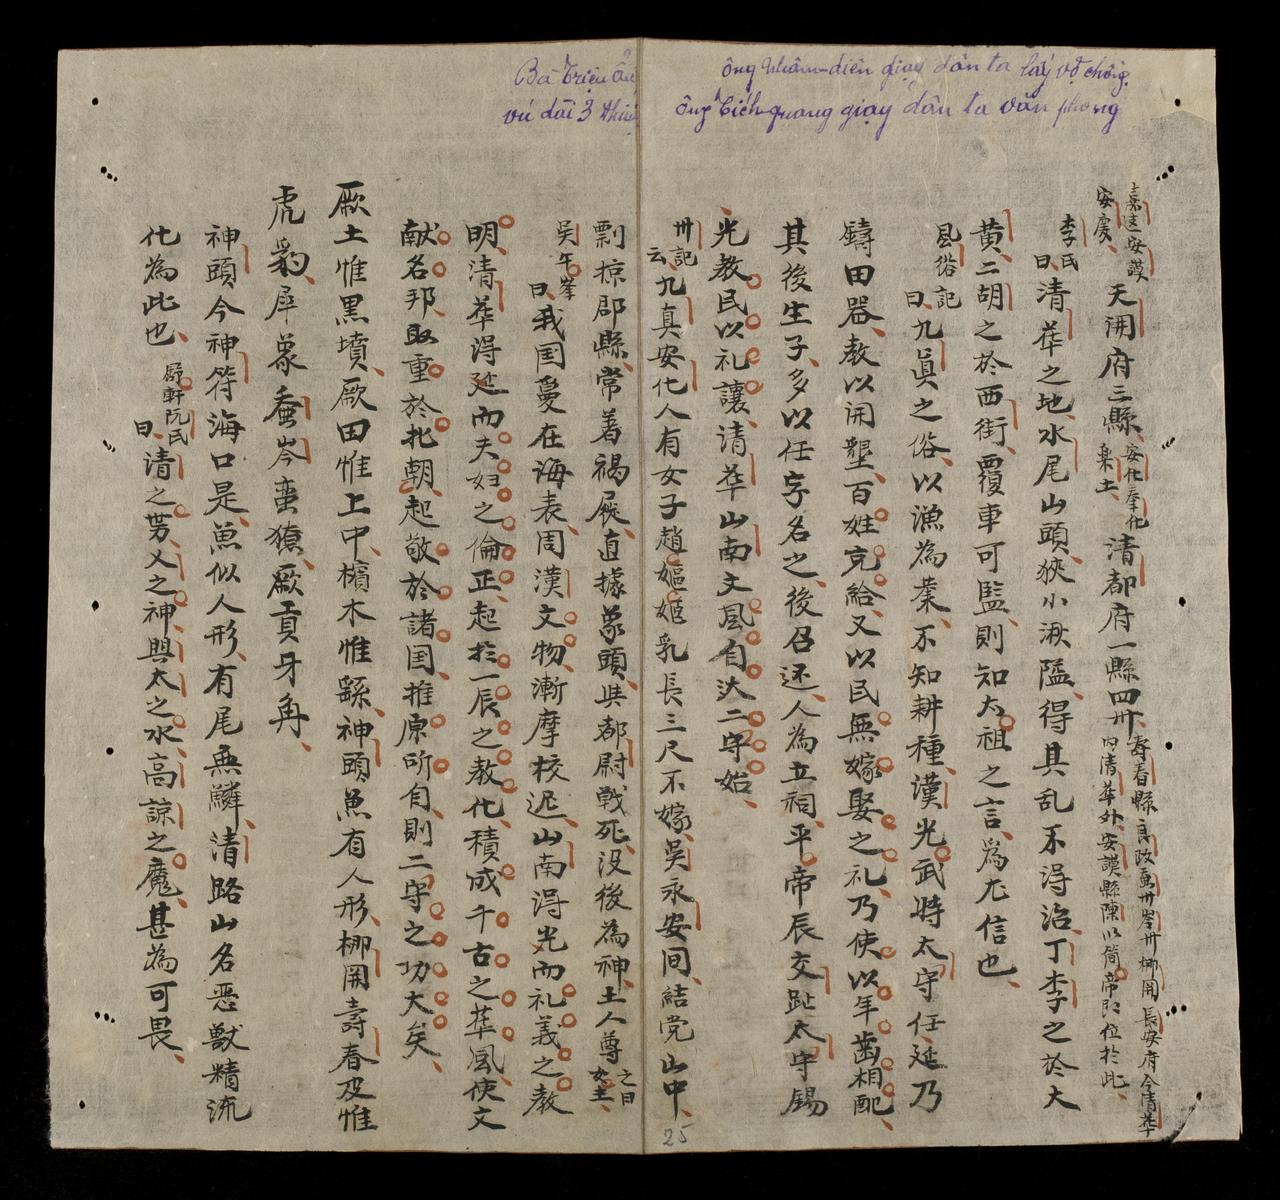 ông Nhâm-diên giạy dân ta lấy vợ chồng
ông Tích-quang giạy dân ta văn phong
Bà Triệu Ẩu
vú dài 3 thước
嘉遠安謨
安慶
天開府三縣
安化奉化
樂土
清都府一縣四卅
壽春縣良政
卅岑卅梛開長安府今清華
內清華外安謨縣陳以簡帝即位於此
李氏曰清華之地水尾山頭狹小湫隘得其乱不得治丁李之於大
黄二胡之於西街覆車可監則知太祖之言為尤信也
風俗記曰九眞之俗以漁為業不知耕種漢光武時太守任延乃
鑄田器教以開墾百姓充給又以民無嫁娶之礼乃使以年齒相配
其後生子多以任字名之後召还人為立祠平帝辰交趾太守錫
光教民以礼讓清華山南文風自汏二守始
卅記云九真安化人有女子趙嫗姬乳長三尺不嫁吳永安间結党山中
剽掠郡縣常着褐屐直據象頭與都尉戰死没後為神土人尊之曰女主
吳午峯曰我国憂在海表周漢文物漸摩校迟山南得光而礼義之教
明清華得延而夫妇之倫正起於一辰之教化積成千古之華風使文
献名邦取重於北朝起敬於諸国推原所自則二守之功大矣
厥土惟黑墳厥田惟上中檳木惟繇神頭魚有人形梛開壽春及惟
虎豹犀象蚕岑蛮獠厥貢牙角
神頭今神符海口是魚似人形有尾無鱗清路山名恶獸精流
化為此也
軒阮氏曰清之㓇乂之神興太之水高諒之魔甚為可畏
25